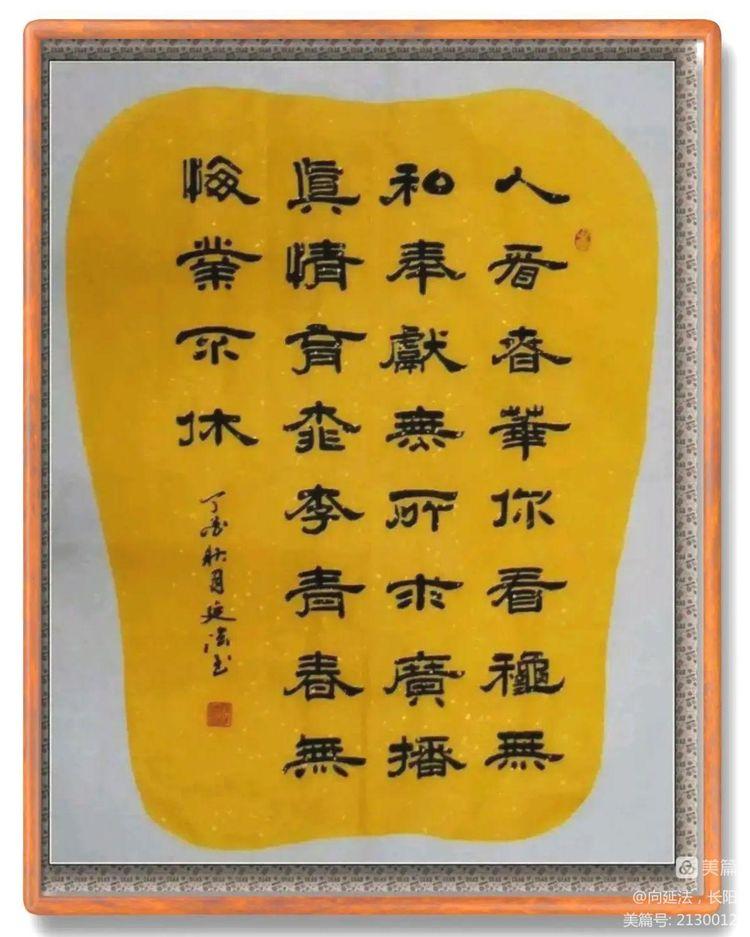 人春華你看穐無
和奉獻無所求廣播
眞情育桃李青春無
悔業不休
丁酉秋月延法书
美篇
@向延法，长阳
美篇号: 2130012